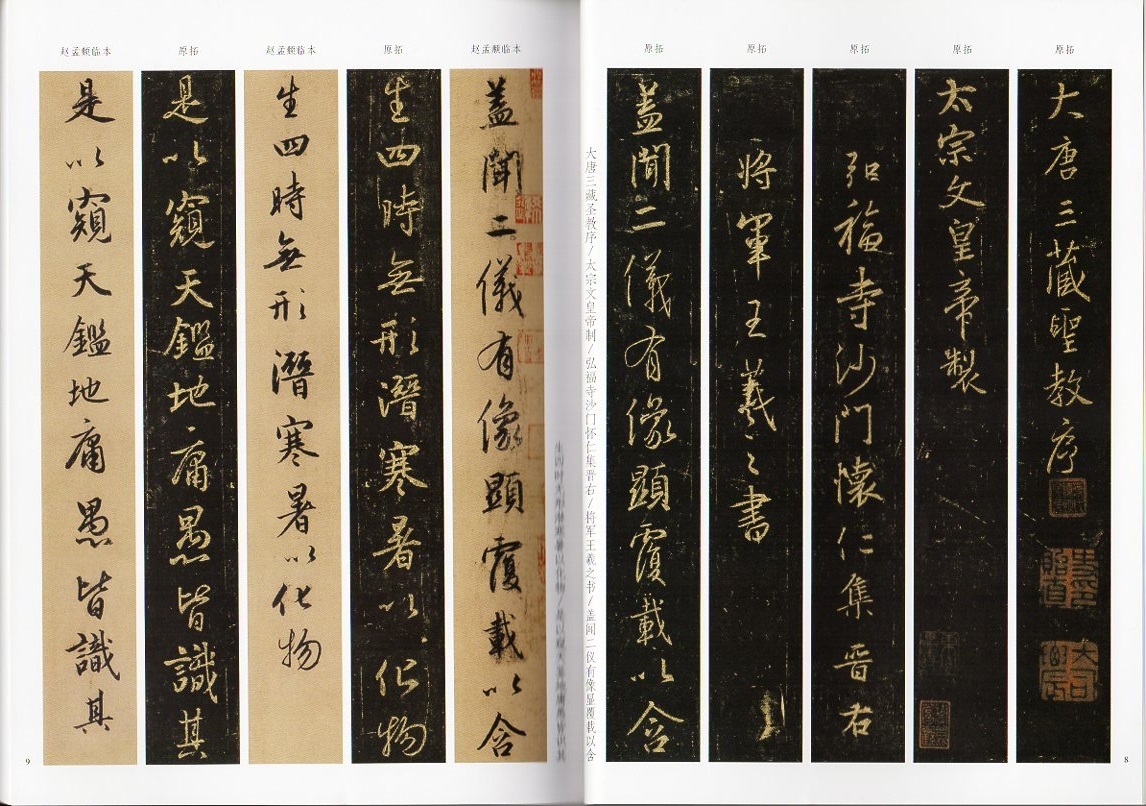 原拓
大唐三藏聖教序
原拓
太宗文皇帝製
原拓
弘福寺沙門懷仁集晉右
原拓
將軍王羲之書
原拓
盖聞二儀有像顯覆載以含
大唐三藏圣教序/太宗文皇帝制/弘福寺沙门怀仁集晋右/将军王羲之书/盖闻二仪有像显覆载以含
8
生四时无形潜寒暑以化物/是以窥天鉴地庸愚皆识其
赵孟頫临本
盖聞二儀有像顯覆載以含
原拓
生四時無形潛寒暑以化物
赵孟頫临本
生四時無形潛寒暑以化物
原拓
是以窺天鑑地庸愚皆識其
赵孟頫临本
是以窺天鑑地庸愚皆識其
9